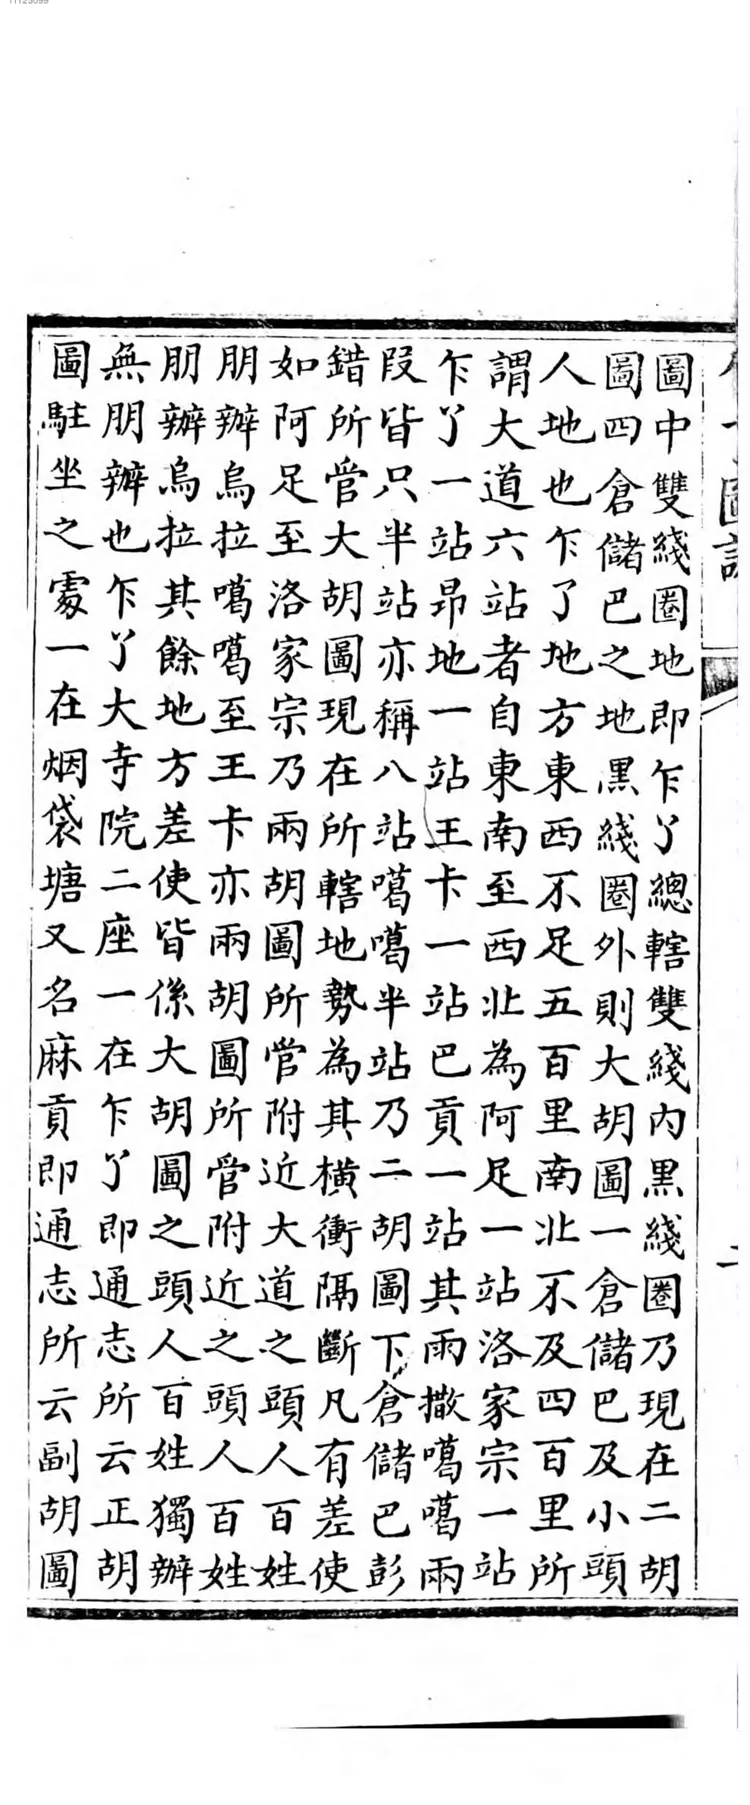 圖中雙綫圈地即乍丫總轄雙綫內黑綫圈乃現在二胡
圖四倉儲巴之地黑綫圈外則大胡圖一倉儲巴及小頭
人地也乍了地方東西不足五百里南北不及四百里所
謂大道六站者自東南至西北為阿足一站洛家宗一站
乍丫一站昻地一站王卡一站巴貢一站其雨撒噶噶兩
段皆只半站亦稱八站噶噶半站乃二胡圖下倉儲巴彭
錯所管大胡圖現在所轄地勢為其橫衝隔斷凡有差使
如阿足至洛家宗乃兩胡圖所管附近大道之頭人百姓
朋辦烏拉噶噶至王卡亦兩胡圖所管附近之頭人百姓
朋辦烏拉其餘地方差使皆係大胡圖之頭人百姓獨辦
無朋辦也乍丫大寺院二座一在乍丫即通志所云正胡
圖駐坐之處一在烟袋塘又名麻貢即通志所云副胡圖